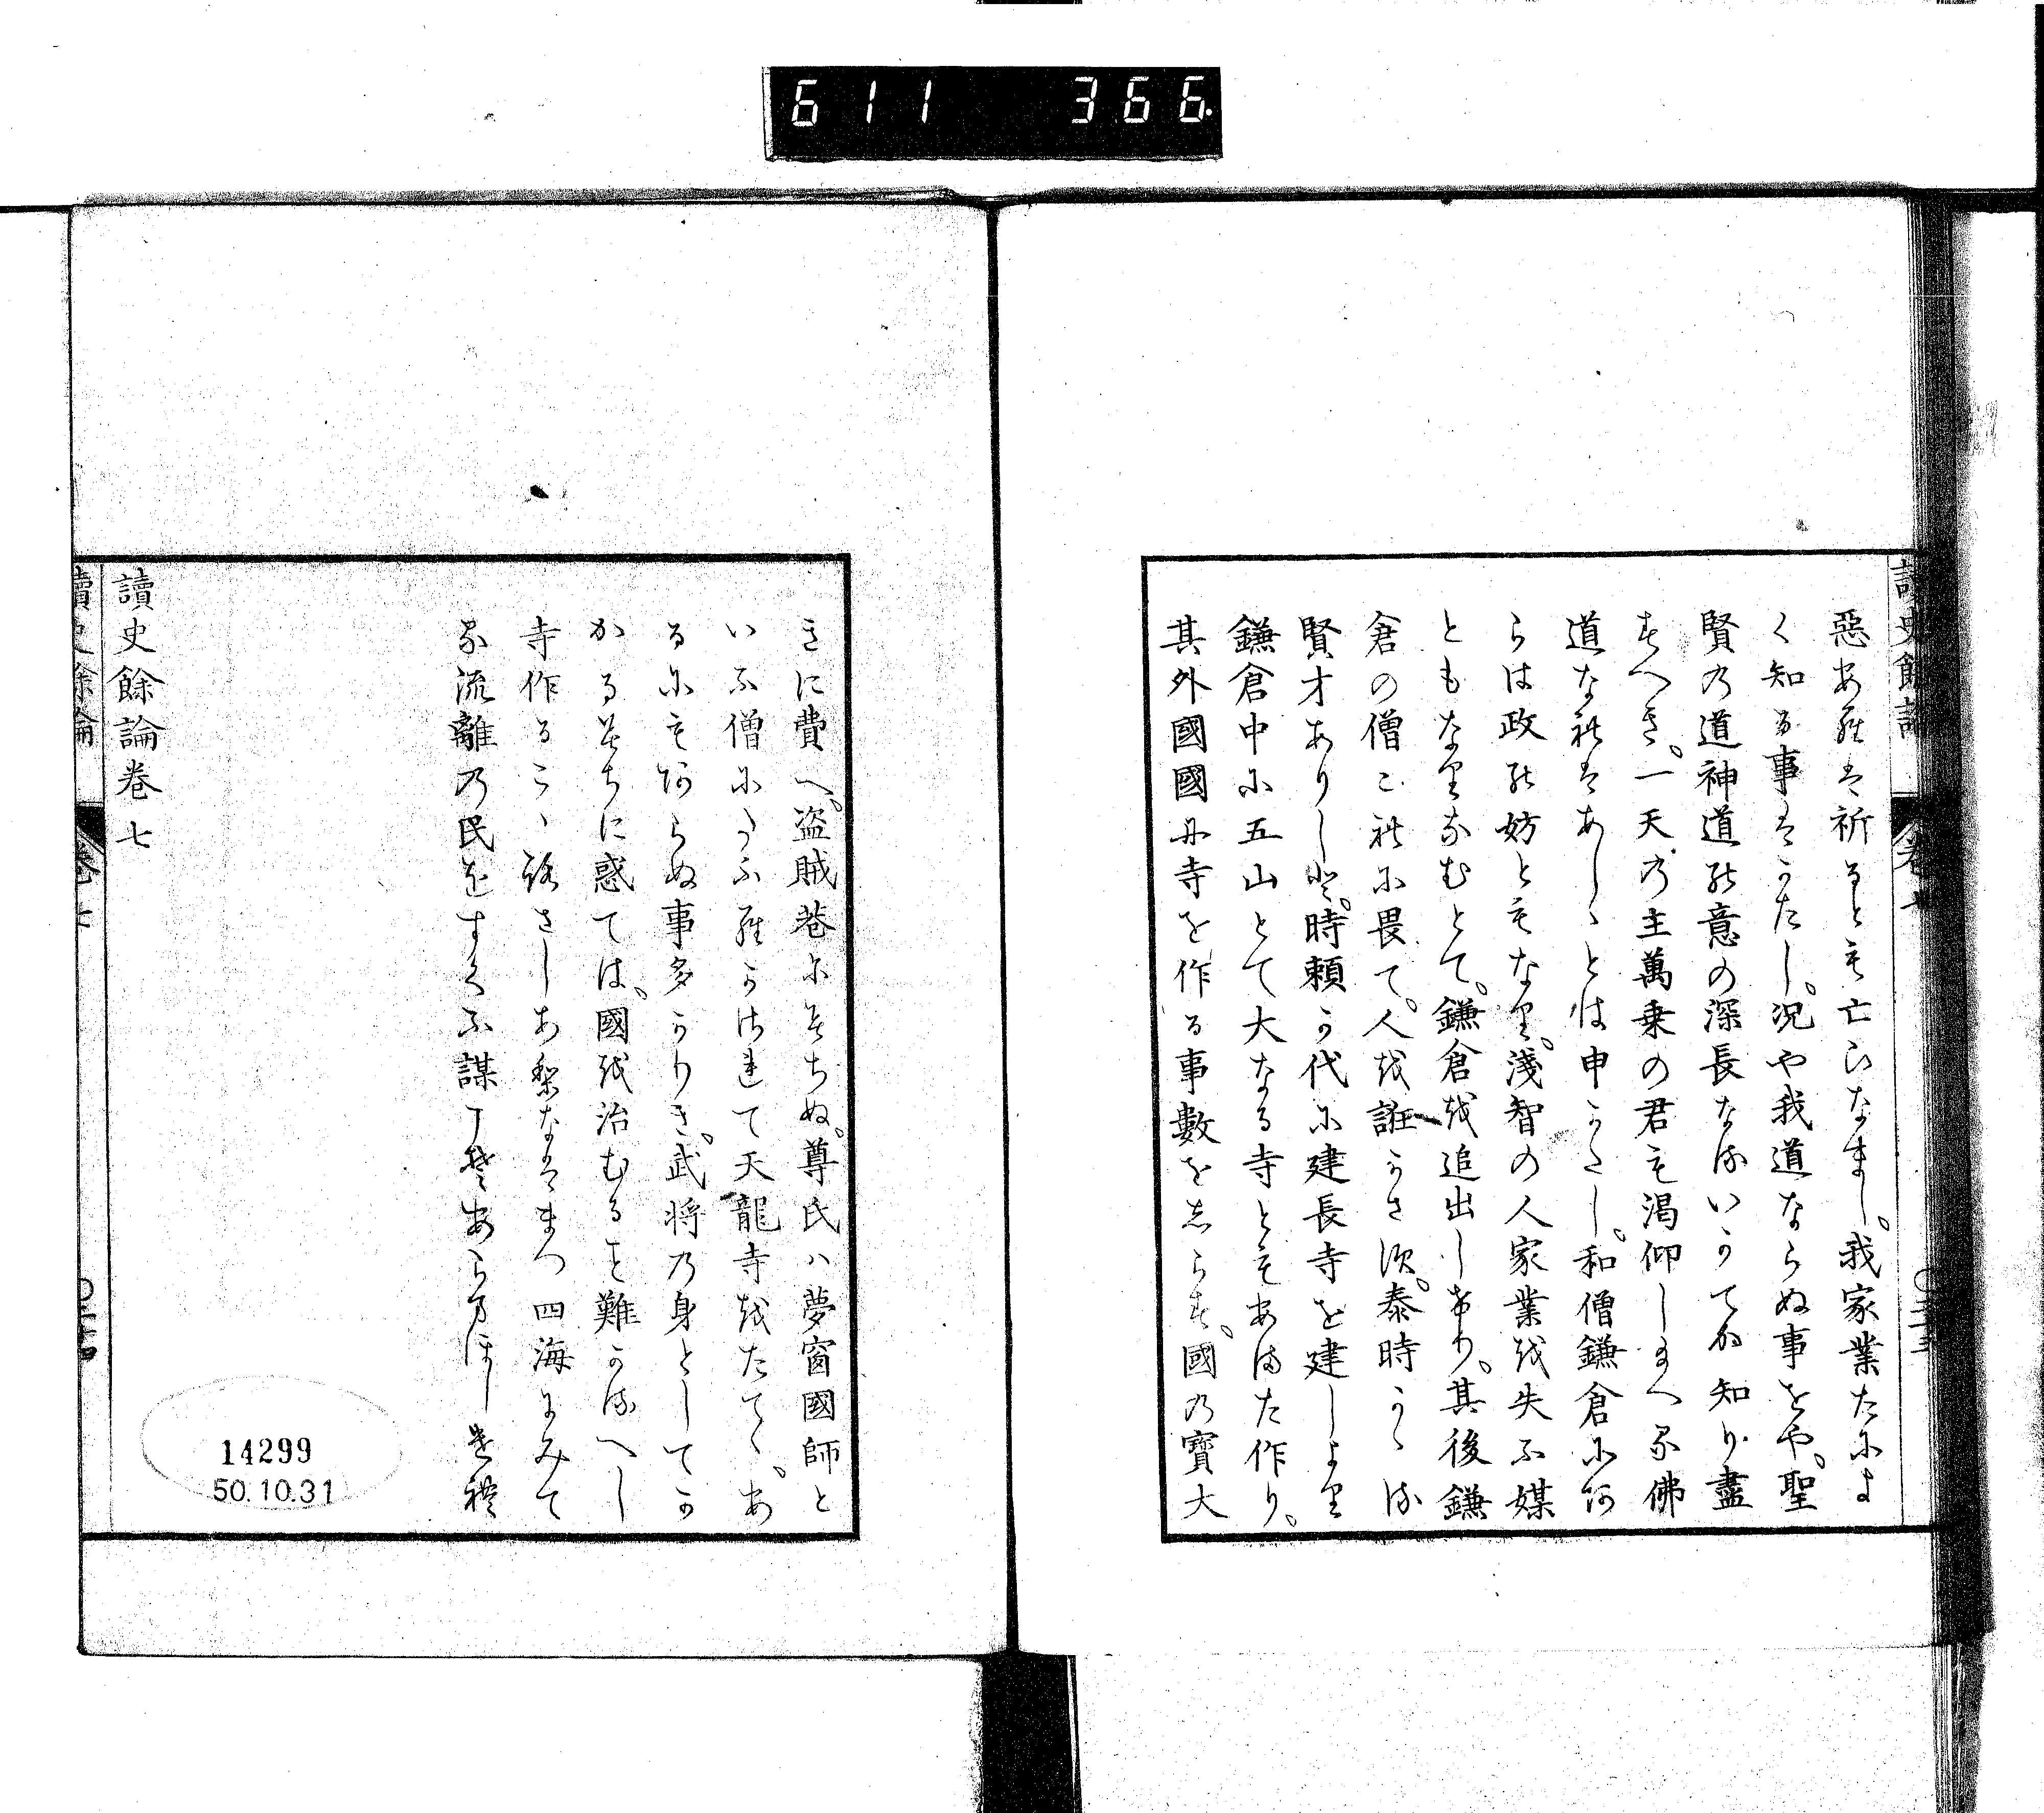 611 366
讀史餘論
卷七
惡あれは祈るとも亡ひなまし。我家業たによ
く知る事はかたし。况や我道ならぬ事をや。聖
賢の道神道の意の深長なるいかてか知り盡
すへき。一天の主萬乗の君も渇仰し給へる佛
道なれはあしゝとは申かたし。和僧鎌倉にあ
らは政の妨ともなり。淺智の人家業を失ふ媒
ともなりなむとて。鎌倉を追出しけり。其後鎌
倉の僧これに畏て。人を誑かさす。泰時かゝる
賢才ありしに。時頼か代に建長寺を建しより
鎌倉中に五山とて大なる寺ともあまた作り。
其外國國に寺を作る事數をしらす。國の寶大
きに費へ。盗賊巷にみちぬ。尊氏ハ夢窗國師と
いふ僧にたふらかされて天龍寺をたてゝ。あ
るにもあらぬ事多かりき。武将の身としてか
かるみちに惑ては。國を治むるも難かるへし
寺作るこゝろさしあらなはまつ四海にみて
る流離の民をすくふ謀こそあらまほしけれ
讀史餘論卷七
讀史餘論
卷七
14299
50.10.31